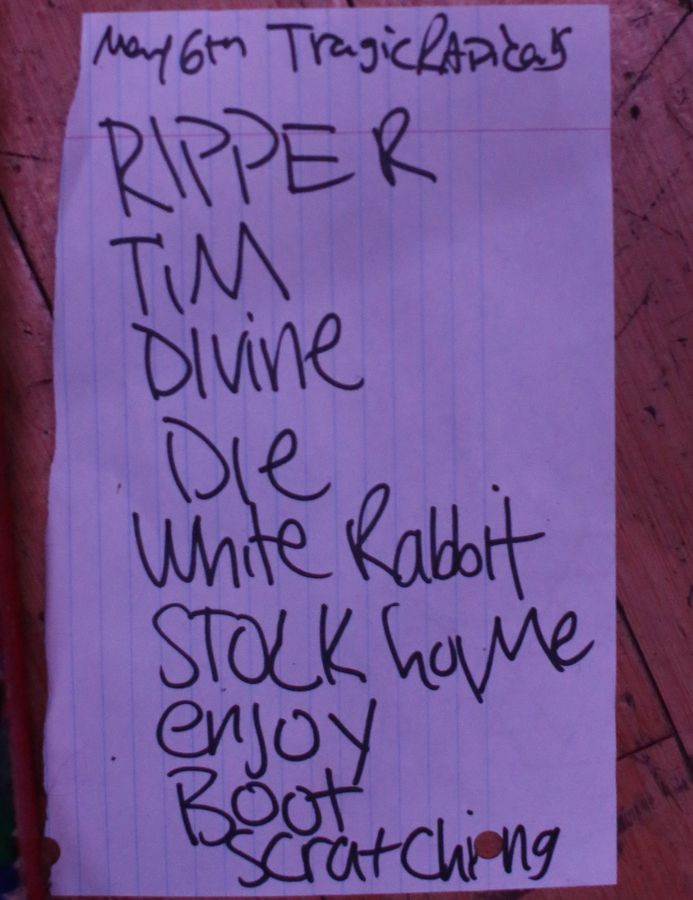 May 6th Tragic RADicals
RIPPER
TiM
DIVine
DIe
White Rabbit
STOCK home
enjoy
Boot
scratching